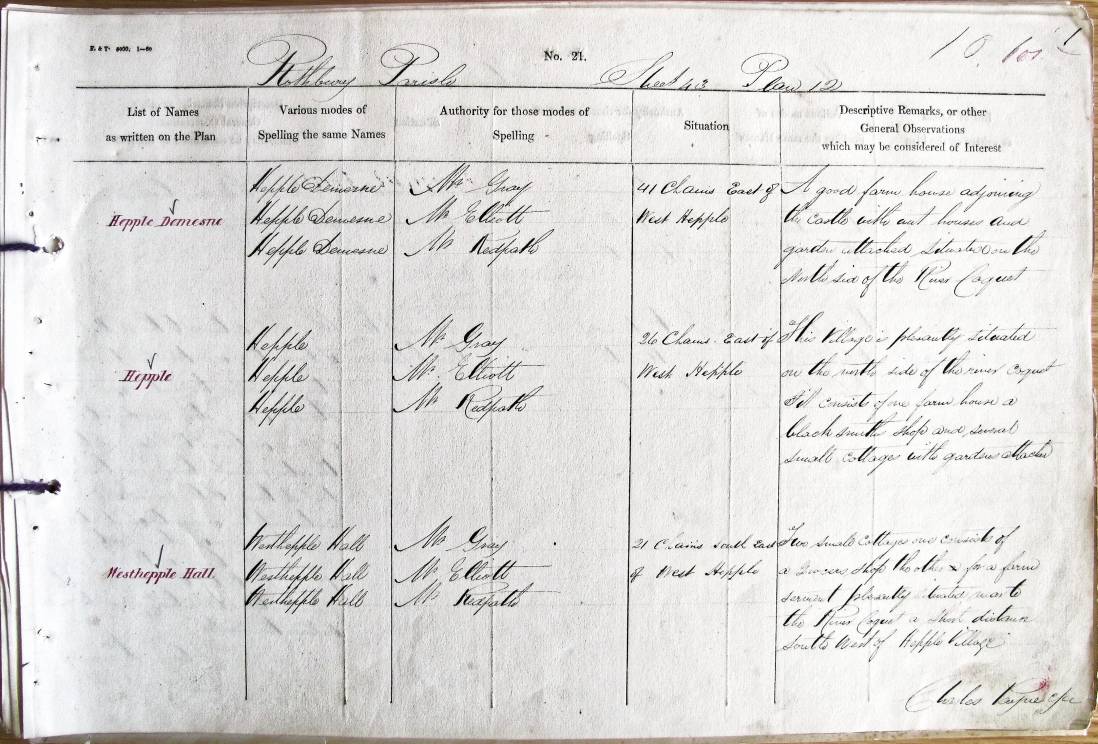 F. & T. 5000; 1-60
No. 21.
10 101
Rothbury Parish Sheet 43 Plan 12
List of Names
as written on the Plan
Various modes of
Spelling the same Names
Authority for those modes of
Spelling
Situation
Descriptive Remarks, or other
General Observations
which may be considered of Interest
Hepple Demesne
Hepple Demesne
Hepple Demesne
Hepple Demesne
Mr. Gray
Mr. Elliott
Mr. Redpath
41 Chains East of
West Hepple
A good farm house adjoining
the Castle with out houses and
garden attached situated on the
North side of the River Coquet
Hepple
Hepple
Hepple
Hepple
Mr. Gray
Mr. Elliott
Mr. Redpath
26 Chains East of
West Hepple
This Village is plesantly situated
on the north side of the river Coquet
It consists of one farm house a
blacksmith shop and several
small cottages with gardens attached
Westhepple Hall
Westhepple Hall
Westhepple Hall
Westhepple Hall
Mr. Gray
Mr. Elliott
Mr. Redpath
21 Chains South East
of West Hepple
Two small cottages one consists of
a Grocers shop the other is for a farm
servant plesantly situated near to
the River Coquet a short distance
South West of Hepple Village
Charles